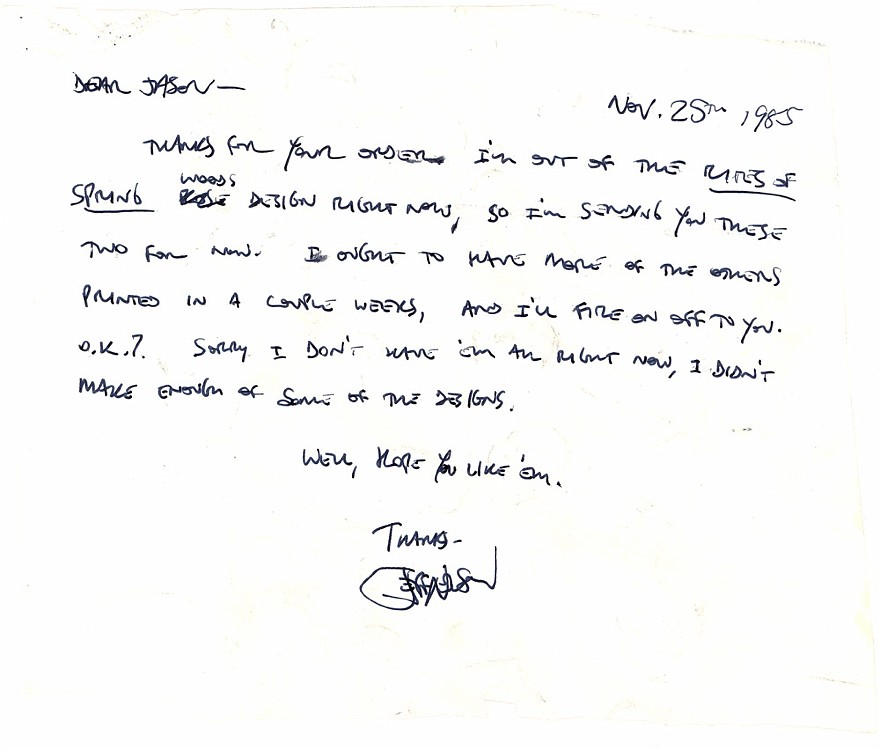 DEAR JASON—
NOV. 25TH, 1985
THANKS FOR YOUR ORDER. I'M OUT OF THE RITES OF
SPRING WOODS DESIGN RIGHT NOW, SO I'M SENDING YOU THESE
TWO FOR NOW. I OUGHT TO HAVE MORE OF THE OTHERS
PRINTED IN A COUPLE WEEKS, AND I'LL FIRE ON OFF TO YOU.
O.K.? SORRY I DON'T HAVE 'EM ALL RIGHT NOW, I DIDN'T
MAKE ENOUGH OF SOME OF THE DESIGNS.
WELL, HOPE YOU LIKE 'EM.
THANKS-